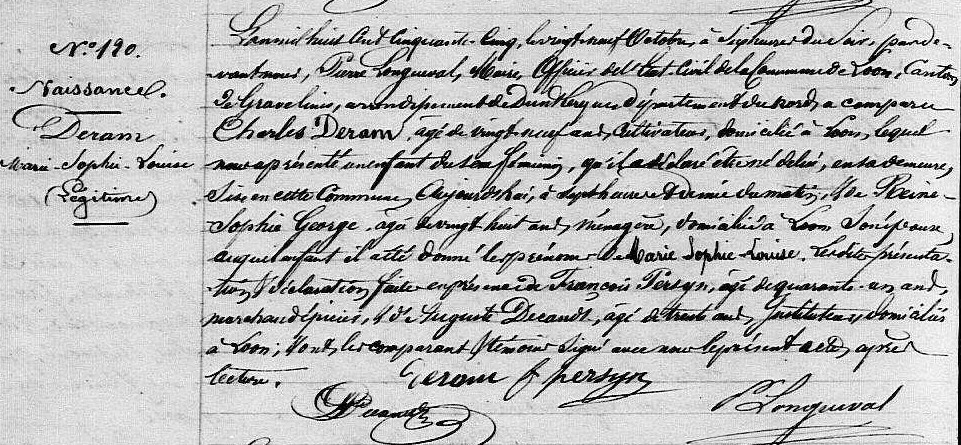 N.º 190.
Naissance.
Deram
Marie-Sophie-Louise
(Légitime)
L'an mil huit cent cinquante-cinq, le vingt neuf Octobre, à Sept heures du Soir, par de-
vant nous, Pierre Longueval, Maire, Officier de l'état Civil de la Commune de Loon, Canton
de Gravelines, arrondissement de Dunkerque, département du nord, a comparu
Charles Deram, âgé de vingt-neuf ans, Cultivateur, domicilié à Loon, lequel
nous a présenté un enfant du Sexe féminin, qu'il a déclaré être né de lui, en sa demeure,
Sise en cette Commune, Aujourd'hui, à Sept heures et demie du matin, & de Reine-
Sophie George, âgée de vingt huit ans, ménagère, domiciliée à Loon Son épouse
auquel enfant il a été donné les prénoms de Marie Sophie Louise. Lesdites présenta-
tion & déclaration faites en présence de François Persyn, âgé de quarante-un ans,
marchand épicier, & d'Auguste Decandt, âgé de trente ans, Instituteur, domiciliés
à Loon; & ont, les comparant & témoins Signé avec nous le présent acte, après
lecture.
Deram f persyn
Decandt
P. Longueval